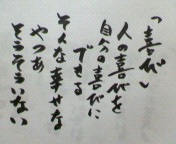 「喜び」
人の喜びを
自分の喜びに
できる
そんな幸せな
やつぁ
そうそういない